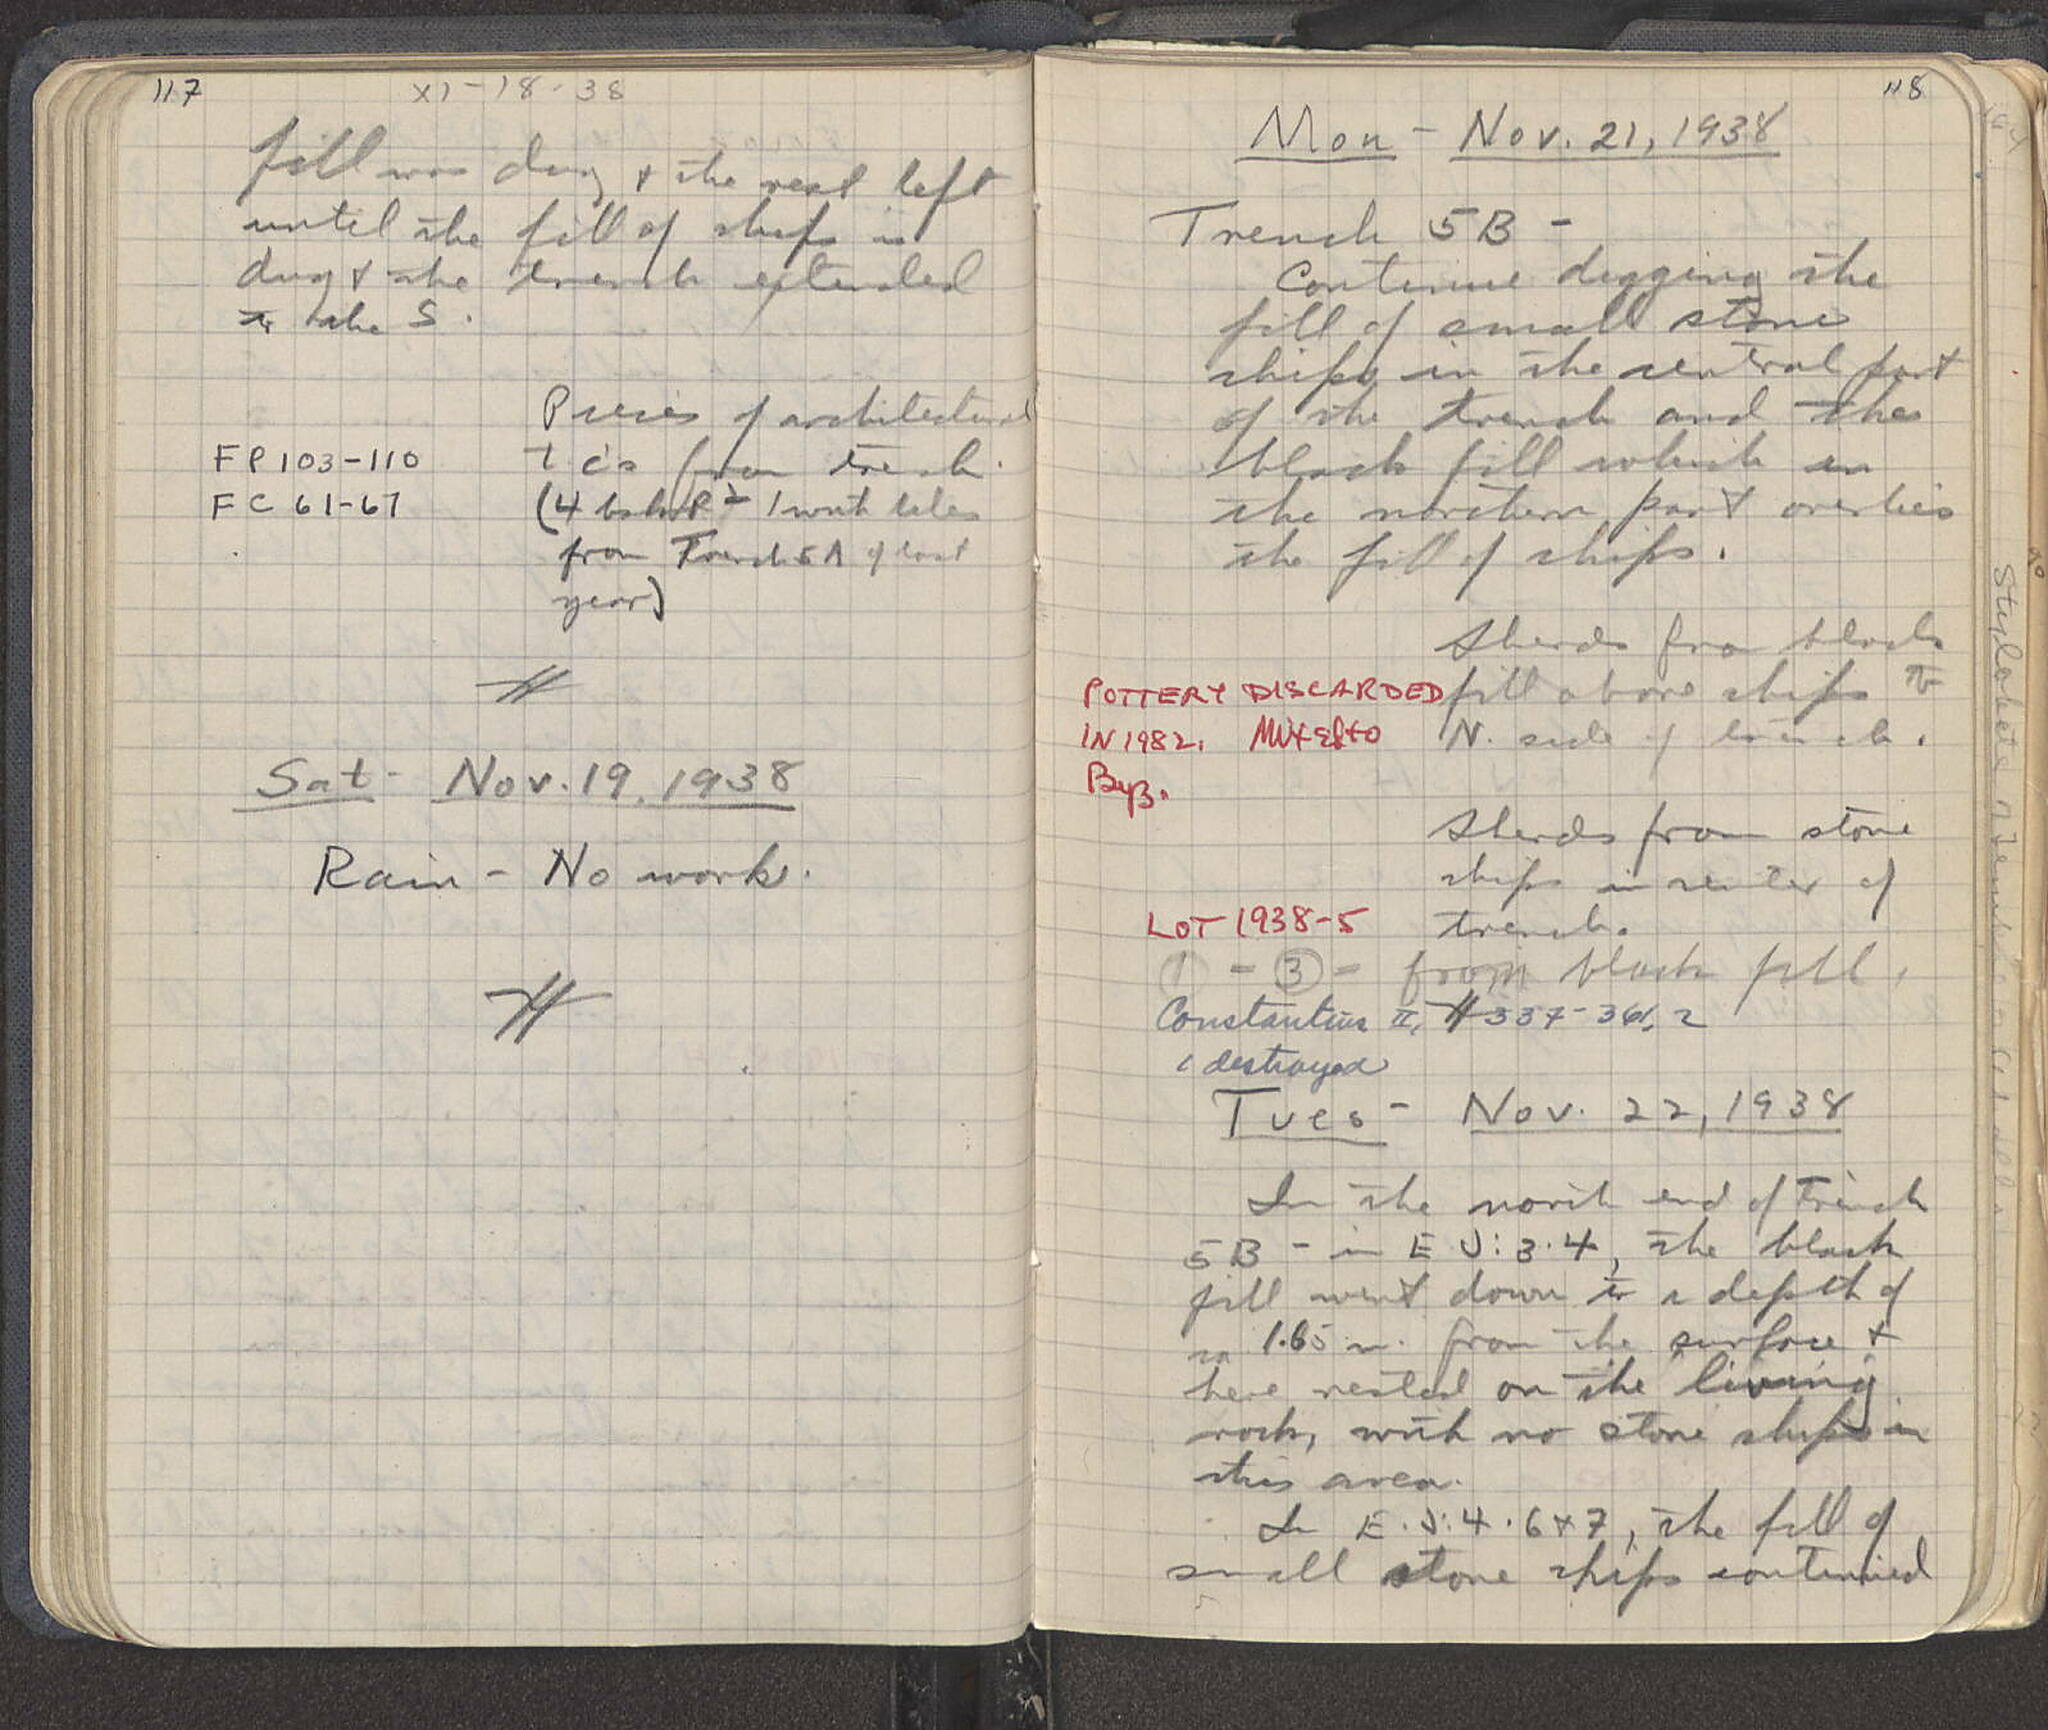 117
XI-18-38
fill was dug & the rest left
until the fill of chips is
dug & the trench extended
to the S.
Pieces of architectural
FP 103-110
t c's from trench.
FC 61-67
(4 bskts - 1 with tiles
from Trench 5A of last
year)
Sat - Nov. 19, 1938
Rain - No work.
118
Mon - Nov. 21, 1938
Trench 5B -
Continue digging the
fill of small stone
chips in the central part
of the trench and the
black fill which in
the northern part overlies
the fill of chips.
Sherds from black
fill above chips to
N. side of trench.
POTTERY DISCARDED
IN 1982. MIXED to
Byz.
Sherds from stone
chips in center of
trench.
LOT 1938-5
1 - 3 - from black fill.
Constantius II, 337-361, 2
1 destroyed
Tues - Nov. 22, 1938
In the north end of Trench
5B - in E J:3.4, the black
fill went down to a depth of
ca 1.65 m. from the surface &
here rested on the living
rock, with no stone chips in
this area.
In E.J:4.6+7, the fill of
small stone chips continued
Stylobate